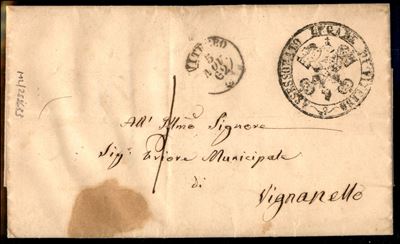 VITERBO
5
62
ASSESSORATO LEGALE DI VITERBO
All' Illmo Signore
Sigr Priore Municipale
di
Vignanello